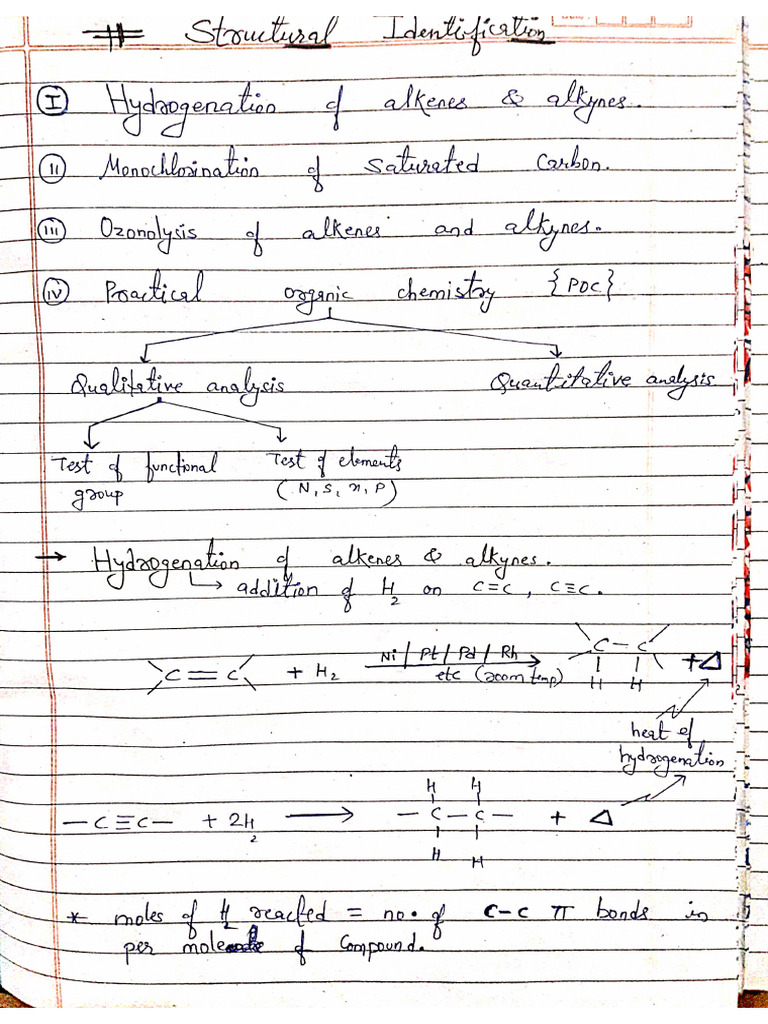 # Structural Identification
(I) Hydrogenation of alkenes & alkynes.
(II) Monochlorination of saturated Carbon.
(III) Ozonolysis of alkenes and alkynes.
(IV) Practical organic chemistry {POC}
Qualitative analysis Quantitative analysis
Test of functional group
Test of elements
(N, S, x, P)
→ Hydrogenation of alkenes & alkynes.
↳ addition of H2 on C=C, C≡C.
>C=C< + H2 Ni/Pt/Pd/Rh etc (room temp) → -C-C- + Δ
H H
heat of hydrogenation
H H
-C≡C- + 2H2 → -C-C- + Δ
H H
* moles of H2 reacted = no. of C-C π bonds in
per mole of Compound.